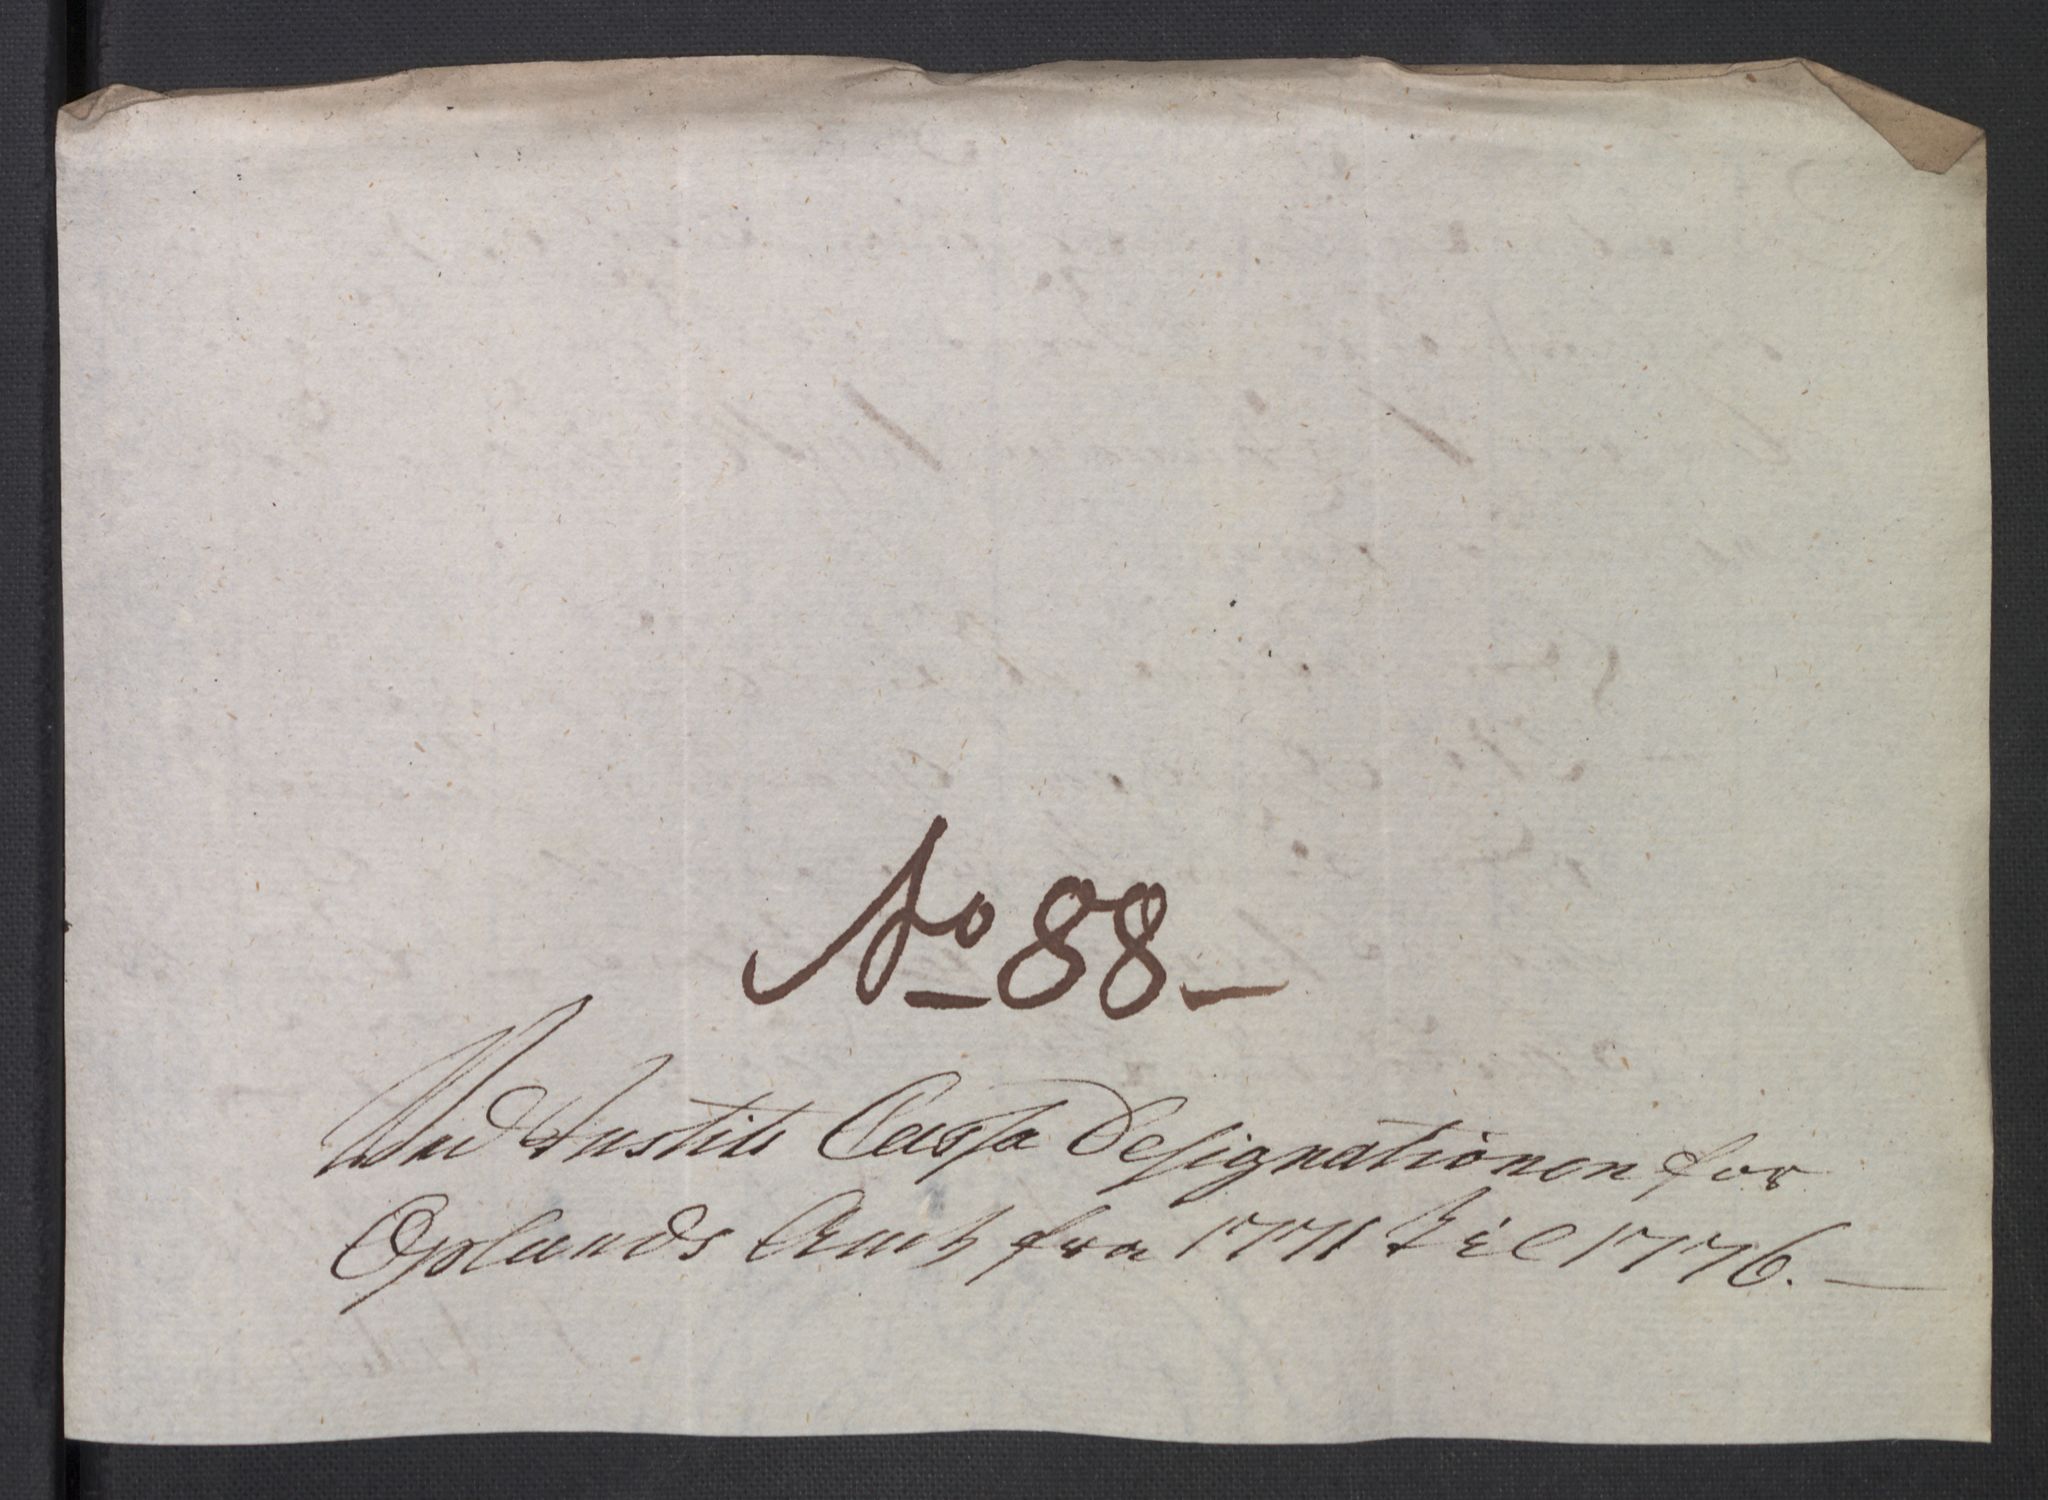 No 88 –
Ved Justits Cassa Designationen for
Oplands Amt fra 1771 til 1776. –